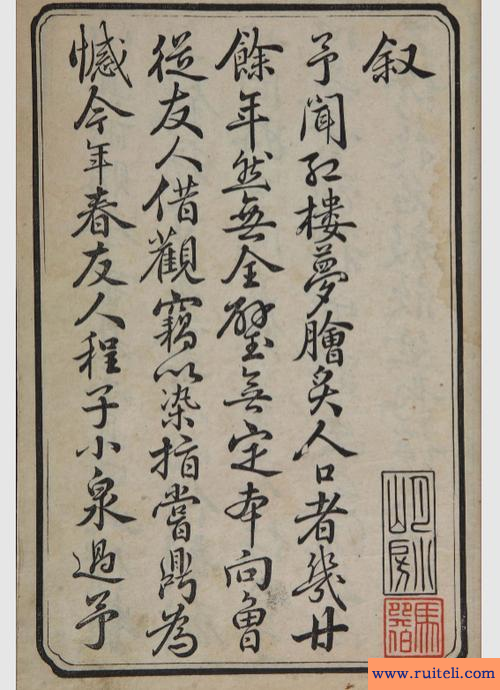 叙
予聞紅樓夢膾炙人口者幾廿
餘年然無全璧無定本向曾
從友人借觀竊以染指嘗鼎為
憾今年春友人程子小泉過予
www.ruiteli.com